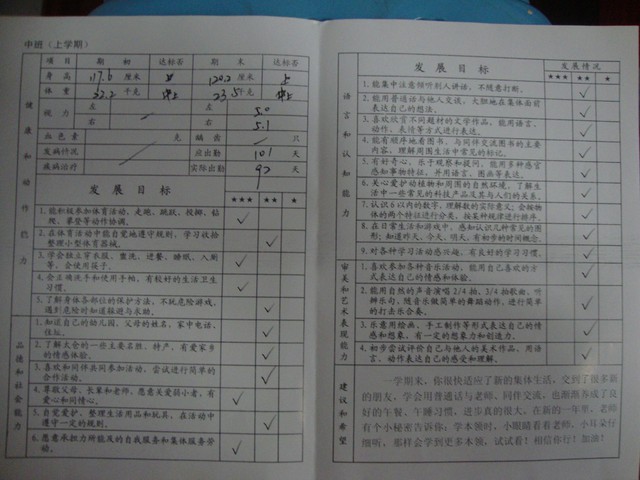 中班（上学期）
项目 期初 达标否 期末 达标否
身高 117.6 厘米 上 120.2 厘米 上
体重 22.2 千克 中上 23.5 千克 中上
视力 左 5.0
右 5.1
血色素 克 龋齿 只
发病情况 应出勤 101 天
疾病治疗 实际出勤 97 天
健康和动作能力
发展目标 ★★★ ★★ ★
1.能积极参加体育活动，走跑、跳跃、投掷、钻
爬、攀登等动作协调。
2.在体育活动中能自觉地遵守规则，学习收拾
整理小型体育器械。
3.学会独立穿衣服、盥洗、进餐、睡眠、入厕
等，会使用筷子。
4.会正确洗手和使用手帕，有较好的生活卫生
习惯。
5.了解身体各部位的保护方法，不玩危险游戏，
遇到危险时知道躲避与求助。
品德和社会能力
1.知道自己的幼儿园，父母的姓名，家中电话、
住址。
2.了解太仓的一些主要名胜、特产，有爱家乡
的情感体验。
3.喜欢和同伴共同参加活动，尝试进行简单的
合作活动。
4.尊敬父母、长辈和老师，愿意关爱弱小者，有
爱心和同情心。
5.自觉爱护、整理生活用品和玩具，在活动中
遵守一定的规则。
6.愿意承担力所能及的自我服务和集体服务劳
动。
发展目标 发展情况
★★★ ★★ ★
语言和认知能力
1.能集中注意倾听别人讲话，不随意打断。
2.能用普通话与他人交流，大胆地在集体面前
表达自己的想法。
3.喜欢欣赏不同题材的文学作品，能用语言、
动作、表情等方式进行表达。
4.能有顺序地看图书，与同伴交流图书的主要
内容，理解周围生活中常见的标记。
5.有好奇心，乐于观察和提问，能用多种感官
感知事物特征，并用语言、图画等表达。
6.关心爱护动植物和周围的自然环境，了解生
活中一些常见的科技产品及其与人们的关系。
7.认识6以内的数字，理解数的实际意义；会按物
体的两个特征进行分类，按某种规律进行排序。
8.在日常生活和游戏中，感知认识几种常见的图
形；知道昨天、今天、明天，有初步的时间概念。
9.对各种学习活动感兴趣，有良好的学习习惯。
审美和艺术表现能力
1.喜欢参加各种音乐活动，能用自己喜欢的方
式表达自己的体验。
2.能用自然的声音演唱2/4拍、3/4拍歌曲，听
辨乐句，随音乐做简单的舞蹈动作，进行简单
的打击乐合奏。
3.乐意用绘画、手工制作等形式表达自己的情
感和想象，有一定的想象力和创造力。
4.初步尝试评价自己与他人的美术作品，用语
言、动作表达自己的感受和理解。
建议和希望
一学期来，你很快适应了新的集体生活，交到了很多新
的朋友，学会用普通话与老师、同伴交流，也渐渐养成了良
好的午餐、午睡习惯，进步真的很大，在新的一年里，老师
有个小秘密告诉你：学本领时，小眼睛看着老师，小耳朵仔
细听，那样会学到更多本领，试试看！相信你行！加油！